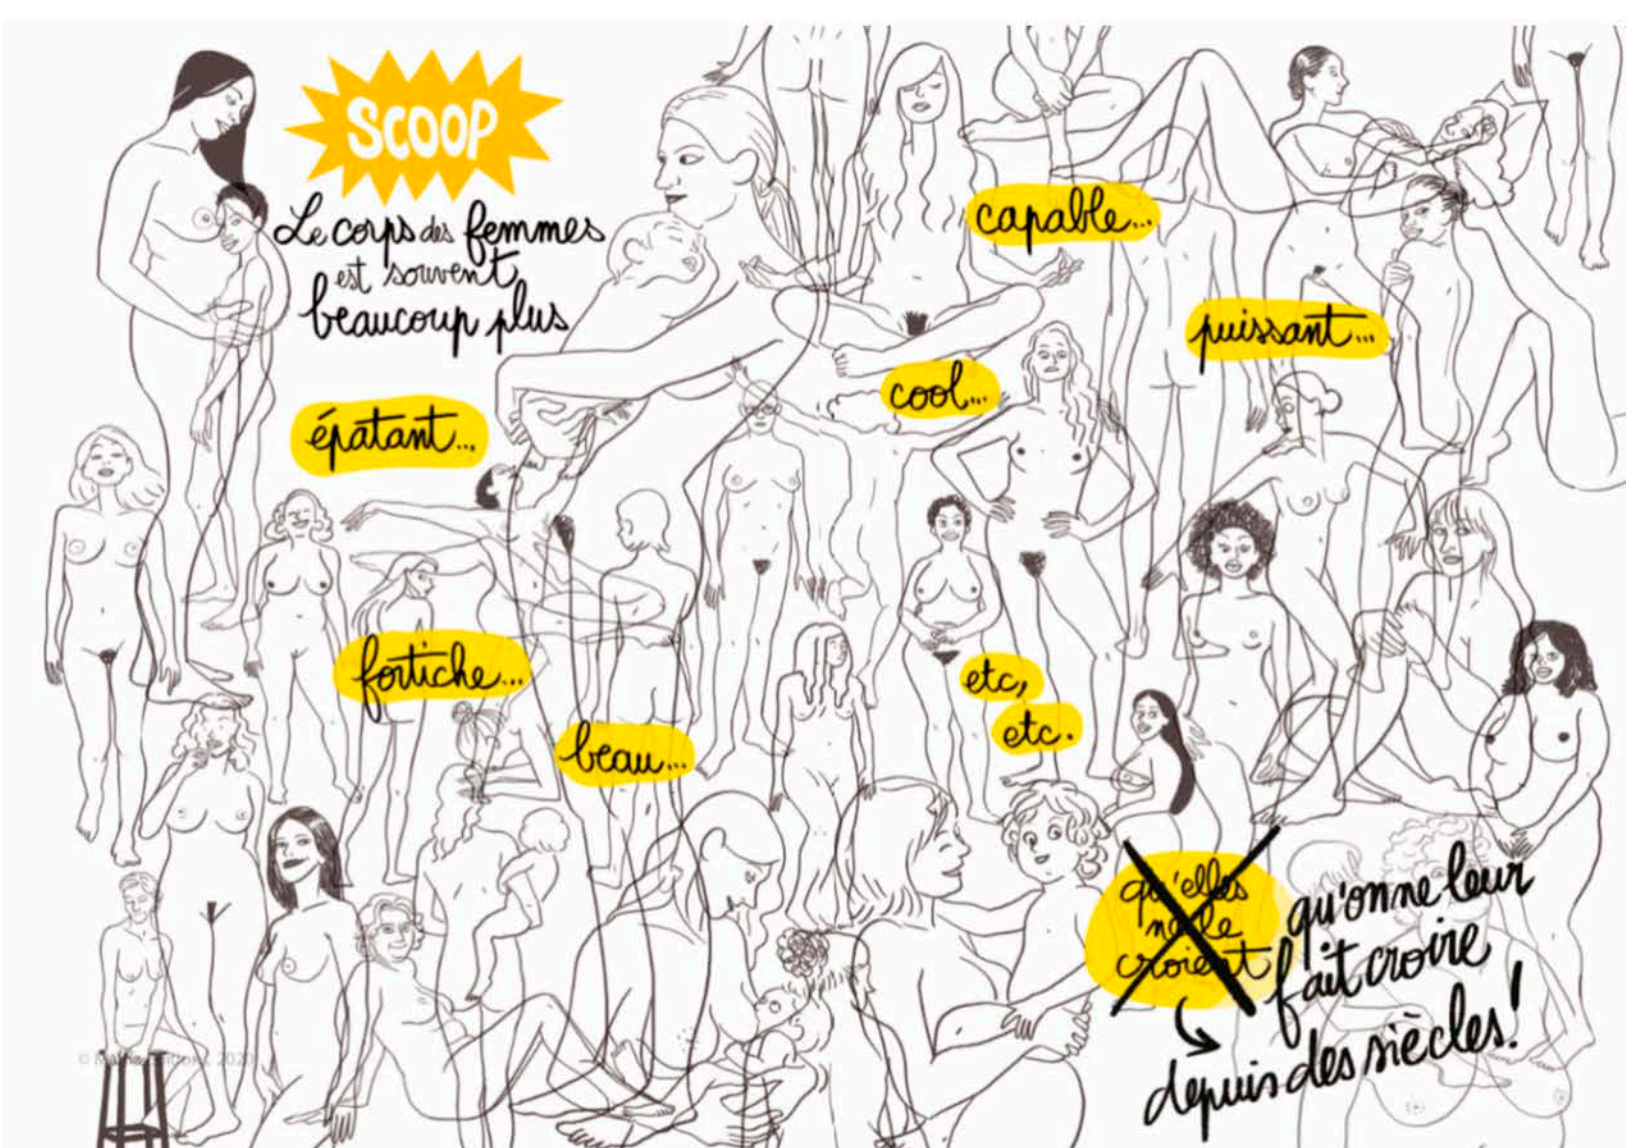 SCOOP
Le corps des femmes
est souvent
beaucoup plus
épatant...
capable...
puissant...
cool...
fortiche...
beau...
etc,
etc.
qu'elles
ne le
croient
qu'on ne leur
fait croire
depuis des siècles!
© 2020